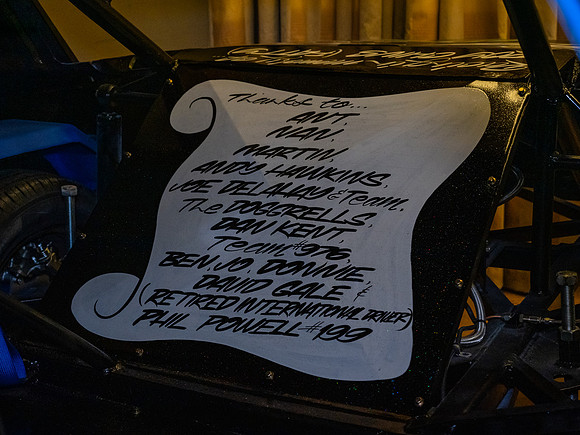 Thanks to...
ANT.
NAN.
MARTIN.
ANDY HAWKINS.
JOE DELAHAY & Team.
The DOGGRELLS.
DAN KENT.
Team #976.
BEN. JO. DONNIE
DAVID GALE &
(RETIRED INTERNATIONAL DRIVER)
PHIL POWELL #199